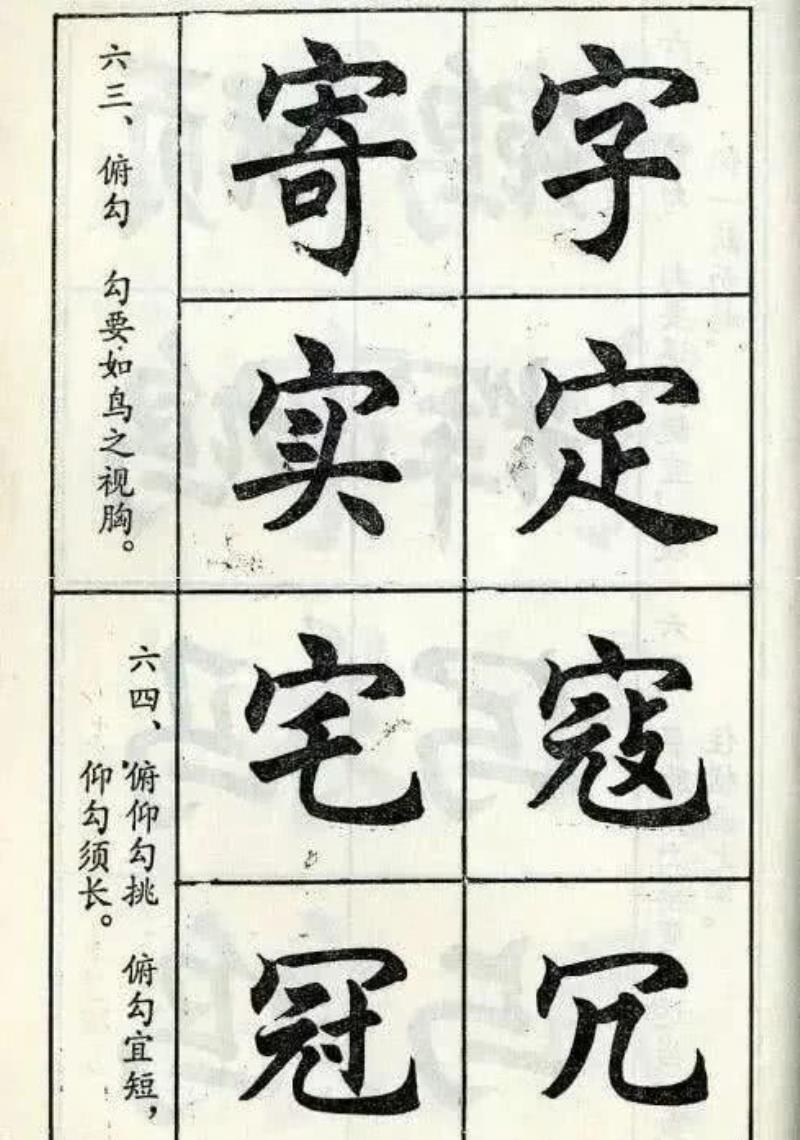 字寄
定实
六三、俯勾 勾要如鸟之视胸。
寇宅
冗冠
六四、俯仰勾挑 俯勾宜短，
仰勾须长。